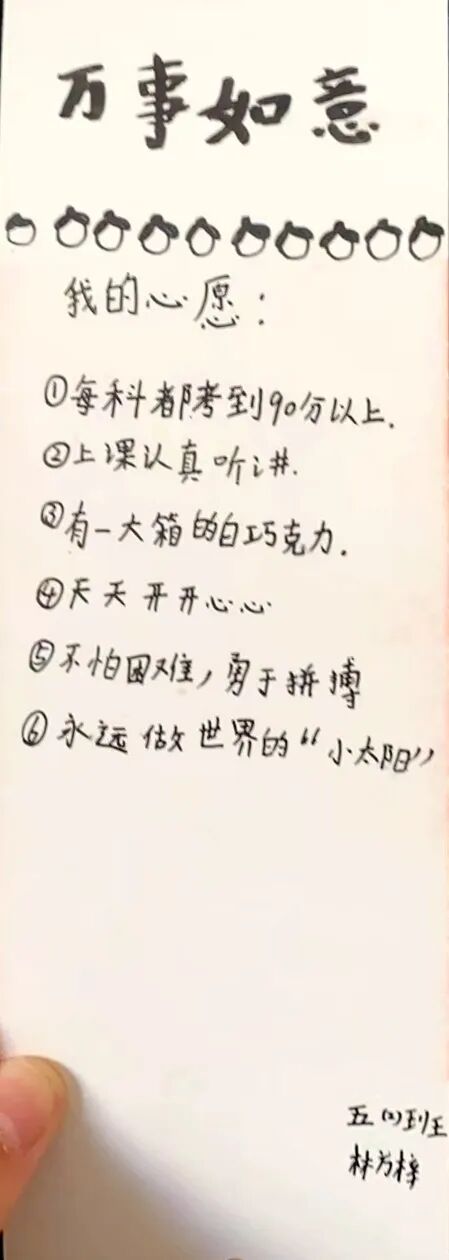 万事如意
我的心愿：
①每科都考到90分以上.
②上课认真听讲.
③有一大箱的白巧克力.
④天天开开心心
⑤不怕困难，勇于拼搏
⑥永远做世界的“小太阳”
五(2)班